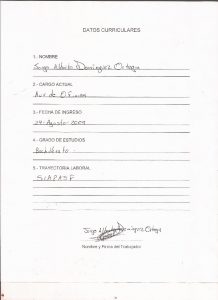 DATOS CURRICULARES
1.- NOMBRE
Jorge Alberto Dominguez Ortega
2.- CARGO ACTUAL
Aux. de Oficina
3.- FECHA DE INGRESO
24 - Agosto - 2009
4.- GRADO DE ESTUDIOS
Bachillerato
5.- TRAYECTORIA LABORAL
SIAPASF
Jorge Alberto Dominguez Ortega
Nombre y Firma del Trabajador